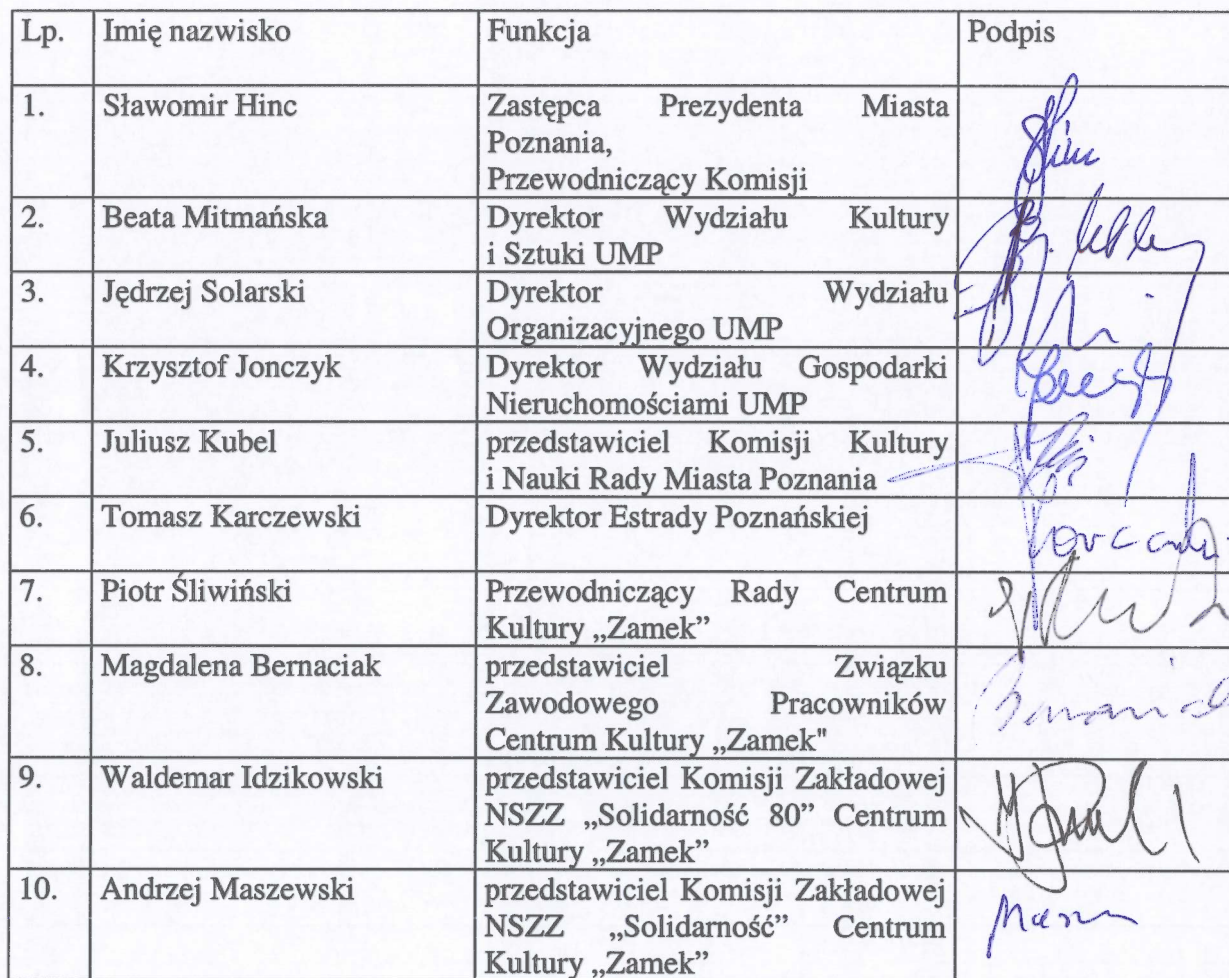 Lp. Imię nazwisko Funkcja Podpis
1. Sławomir Hinc Zastępca Prezydenta Miasta
Poznania,
Przewodniczący Komisji
2. Beata Mitmańska Dyrektor Wydziału Kultury
i Sztuki UMP
3. Jędrzej Solarski Dyrektor Wydziału
Organizacyjnego UMP
4. Krzysztof Jonczyk Dyrektor Wydziału Gospodarki
Nieruchomościami UMP
5. Juliusz Kubel przedstawiciel Komisji Kultury
i Nauki Rady Miasta Poznania
6. Tomasz Karczewski Dyrektor Estrady Poznańskiej
7. Piotr Śliwiński Przewodniczący Rady Centrum
Kultury „Zamek”
8. Magdalena Bernaciak przedstawiciel Związku
Zawodowego Pracowników
Centrum Kultury „Zamek"
9. Waldemar Idzikowski przedstawiciel Komisji Zakładowej
NSZZ „Solidarność 80” Centrum
Kultury „Zamek”
10. Andrzej Maszewski przedstawiciel Komisji Zakładowej
NSZZ „Solidarność” Centrum
Kultury „Zamek”